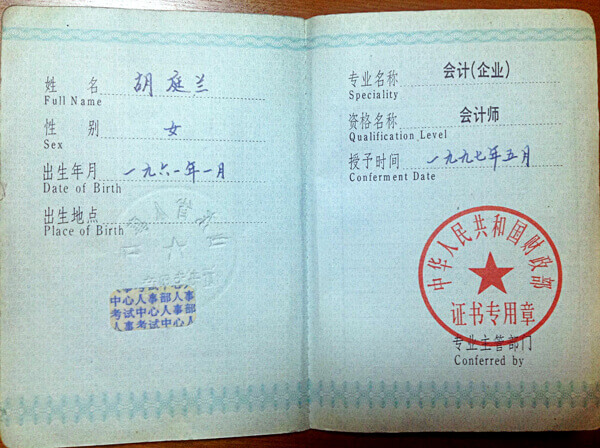 姓 名 胡庭兰
Full Name
性 别 女
Sex
出生年月 一九六一年一月
Date of Birth
出生地点
Place of Birth
中心人事部人事
考试中心人事部
人事考试中心人
专业名称 会计(企业)
Speciality
资格名称 会计师
Qualification Level
授予时间 一九九七年五月
Conferment Date
中华人民共和国财政部
证书专用章
专业主管部门
Conferred by